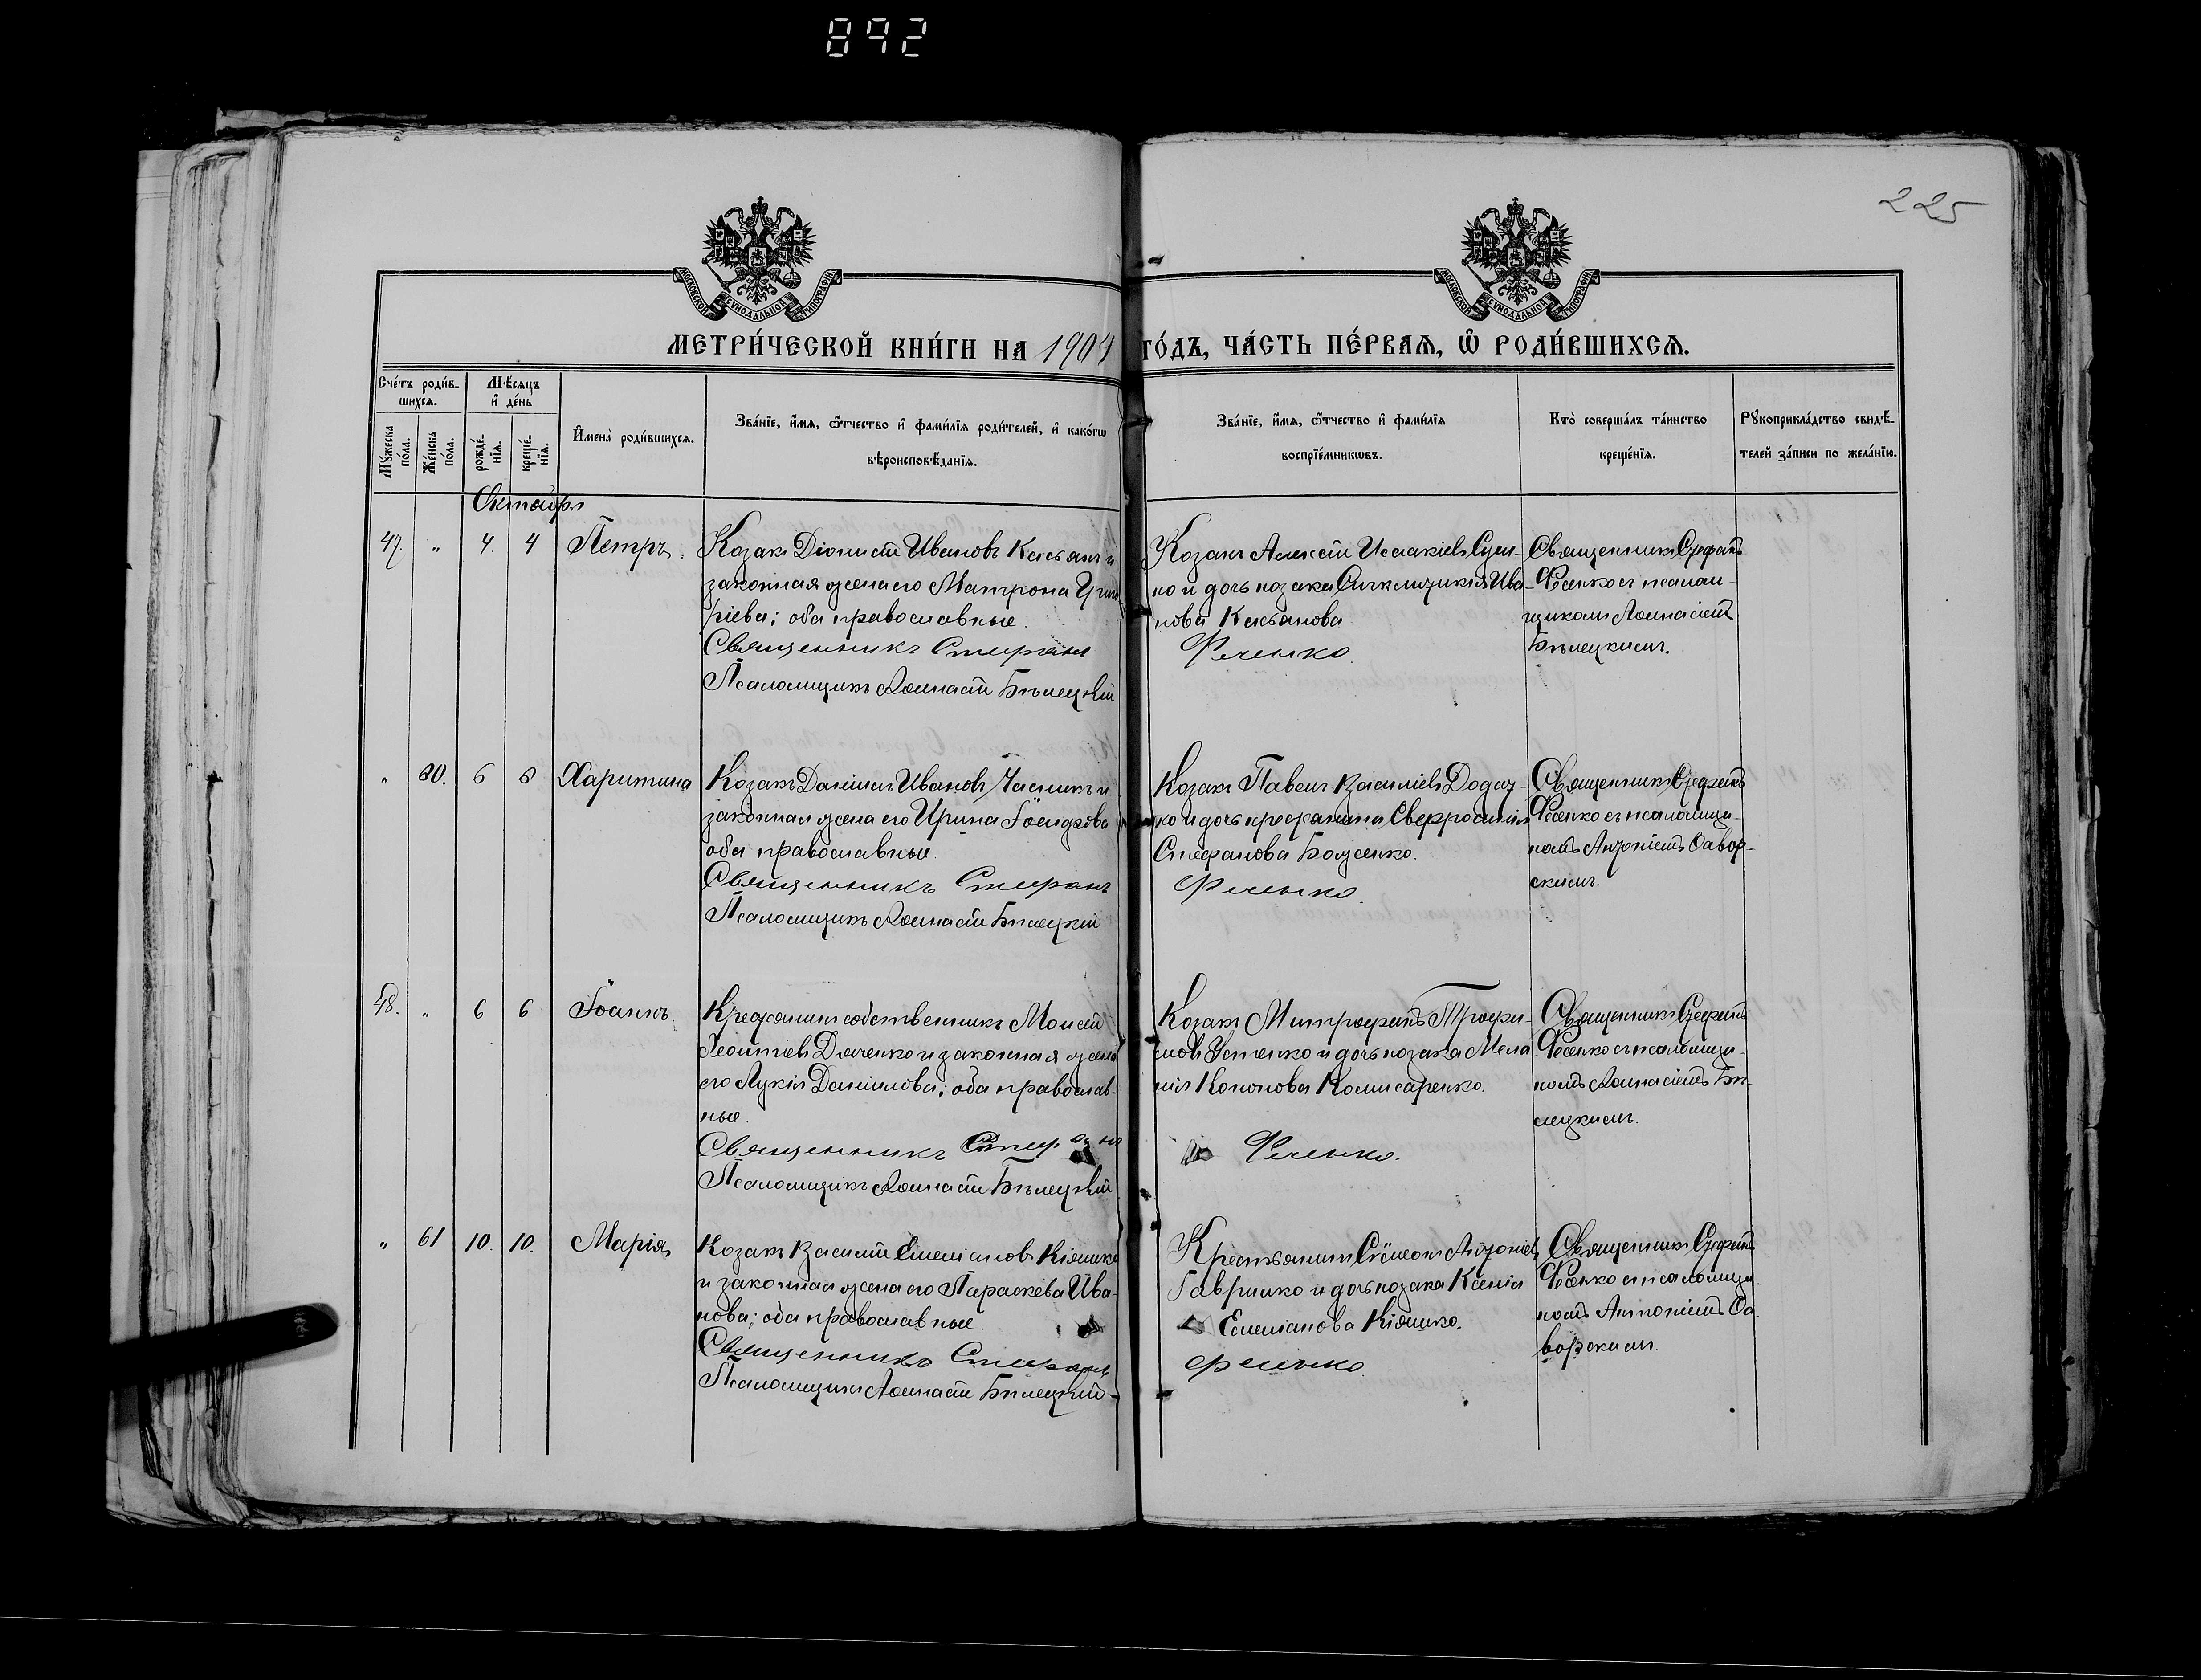 892
225
МОСКОВСКОЙ СѴНОДАЛЬНОЙ ТИПОГРАФІИ
МОСКОВСКОЙ СѴНОДАЛЬНОЙ ТИПОГРАФІИ
МЕТРИ́ЧЕСКОЙ КНИ́ГИ НА 1904 ГО́ДЪ, ЧА́СТЬ ПЕ́РВАЯ, Ѡ҆ РОДИ́ВШИХСЯ.
Сче́тъ роди́в-
шихся.
Мѣ́сяцъ
и҆ де́нь
Му́жеска
по́ла.
Же́нска
по́ла.
рожде́-
нія.
креще́-
нія.
И҆мена̀ роди́вшихся.
Зва́нїе, и҆́мя, ѻ҆́тчество и҆ фами́лїя роди́телей, и҆ како́гѡ
вѣроисповѣ́данїя.
Зва́нїе, и҆́мя, ѻ҆́тчество и҆ фами́лїя
воспрїе́мниковъ.
Кто̀ соверша́лъ та́инство
креще́нїя.
Рукоприкла́дство свидѣ́-
телей за́писи по жела́нїю.
Октябрь
47. " 4. 4 Петръ.
Козакъ Діонисій Ивановъ Касьянъ и
законная жена его Матрона Григо-
ріева; оба православные.
Священникъ Стефанъ
Псаломщикъ Аѳанасій Бѣлецкій
Козакъ Алексій Исаакіевъ
но и дочь козака Ива-
нова Касьянова
Фесенко.
Священникъ Стефанъ
Фесенко съ псалом-
щикомъ Аѳанасіемъ
Бѣлецкимъ.
" 60. 5 Харитина
Козакъ Даніилъ Ивановъ и
законная жена его Ирина
оба православные.
Священникъ Стефанъ
Псаломщикъ Аѳанасій Бѣлецкій
Козакъ Павелъ Василіевъ
ко и дочь крестьянина
Стефанова Боженко.
Фесенко.
Священникъ Стефанъ
Фесенко съ псаломщи-
комъ Антоніемъ Савор-
скимъ.
48. " 6 6 Іоаннъ.
Крестьянинъ собственникъ Моисей
Леонтіевъ Дяченко и законная жена
его Лукія Даніилова; оба православ-
ные.
Священникъ Стефанъ
Псаломщикъ Аѳанасій Бѣлецкій
Козакъ Митрофанъ Трофи-
мовъ Устенко и дочь козака Мела-
нія Кононова Комисаренко.
Фесенко.
Священникъ Стефанъ
Фесенко съ псаломщи-
комъ Аѳанасіемъ Бѣ-
лецкимъ.
" 61 10. 10. Марія
Козакъ Василій Емеліановъ Кіяшко
и законная жена его Параскева Ива-
нова; оба православные.
Священникъ Стефанъ
Псаломщикъ Аѳанасій Бѣлецкій
Крестьянинъ Сѵмеонъ Антоніевъ
Гавришко и дочь козака Ксенія
Емеліанова Кіяшко.
Фесенко.
Священникъ Стефанъ
Фесенко съ псаломщи-
комъ Антоніемъ Са-
ворскимъ.